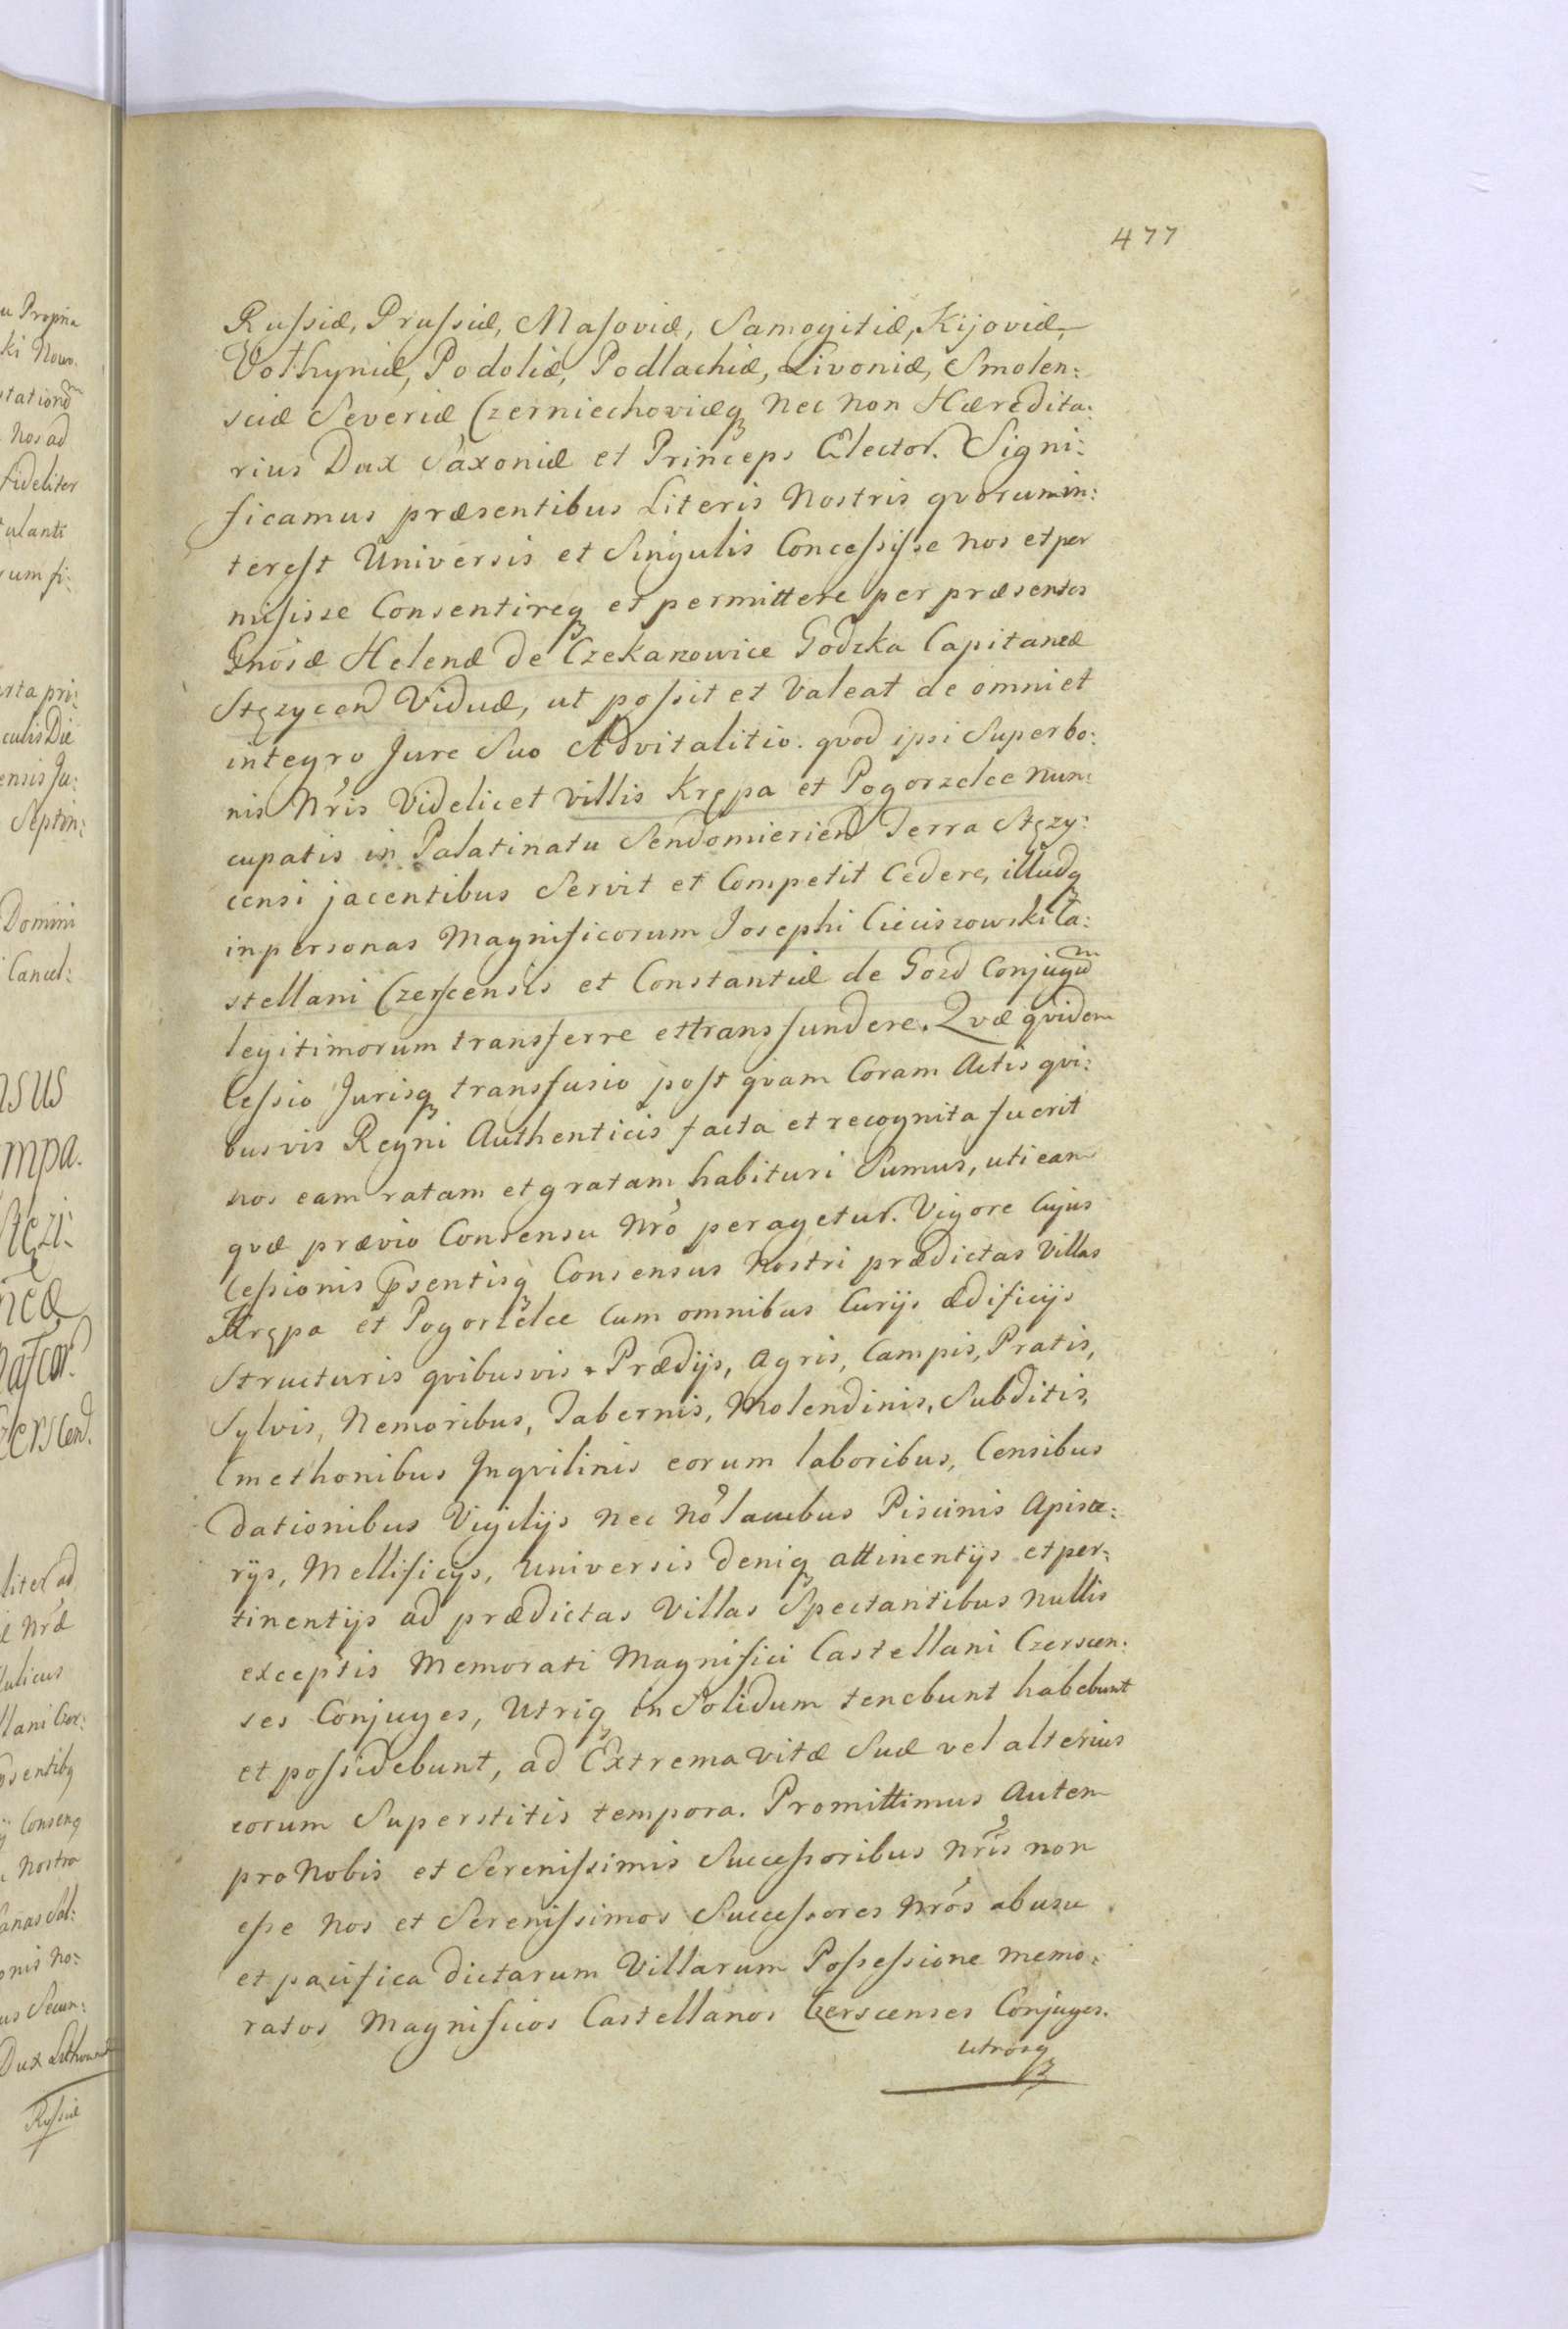 477
Russiæ, Prussiæ, Masoviæ, Samogitiæ, Kijoviæ,
Volhyniæ, Podoliæ, Podlachiæ, Livoniæ, Smolen:
sciæ Severiæ Czerniechoviæq nec non Hæredita:
rius Dux Saxoniæ et Princeps Elector. Signi:
ficamus præsentibus Literis Nostris qvorum in:
terest Universis et Singulis Concessisse nos et per
misisse Consentireq et permittere per præsentes
Gnosæ Helenæ de Czekanowice Godzka Capitaneæ
Stęzycen Viduæ, ut possit et Valeat de omni et
integro Jure Suo Advitalitio. qvod ipsi Super bo:
nis Nris Videlicet villis Krępa et Pogorzelce nun:
cupatis in Palatinatu Sendomirien Terra Stęzy:
censi jacentibus Servit et Competit Cedere, illudq
in personas Magnificorum Josephi Cieciszowski Ca:
stellani Czerscensis et Constantiæ de Gozd Conjugum
legitimorum transferre et transfundere. Qvæ qvidem
Cessio Jurisq transfusio post qvam Coram Actis qvi:
busvis Regni Authenticis facta et recognita fuerit
nos eam ratam et gratam habituri Sumus, uti eam
qvæ prævio Consensu Nro peragetur. Vigore Cujus
Cessionis psentisq Consensus Nostri prædictas Villas
Krępa et Pogorzelce Cum omnibus Curijs ædificijs
Structuris qvibusvis Prædijs, Agris, Campis, Pratis,
Sylvis, Nemoribus, Tabernis, Molendinis, Subditis,
Cmethonibus Inqvilinis eorum laboribus, Censibus
dationibus Vigilijs nec no lacubus Piscinis Apia:
rijs, Mellificijs, Universis deniq attinentijs et per:
tinentijs ad prædictas Villas Spectantibus nullis
exceptis Memorati Magnifici Castellani Czerscen:
ses Conjuges, Utriq in Solidum tenebunt habebunt
et possidebunt, ad Extrema vitæ Suæ vel alterius
eorum Superstitis tempora. Promittimus Autem
pro Nobis et Serenissimis Successoribus Nris non
esse Nos et Serenissimos Successores Nros ab usu
et pacifica dictarum Villarum Possessione memo:
ratos Magnificos Castellanos Czerscenses Conjuges.
utrosq